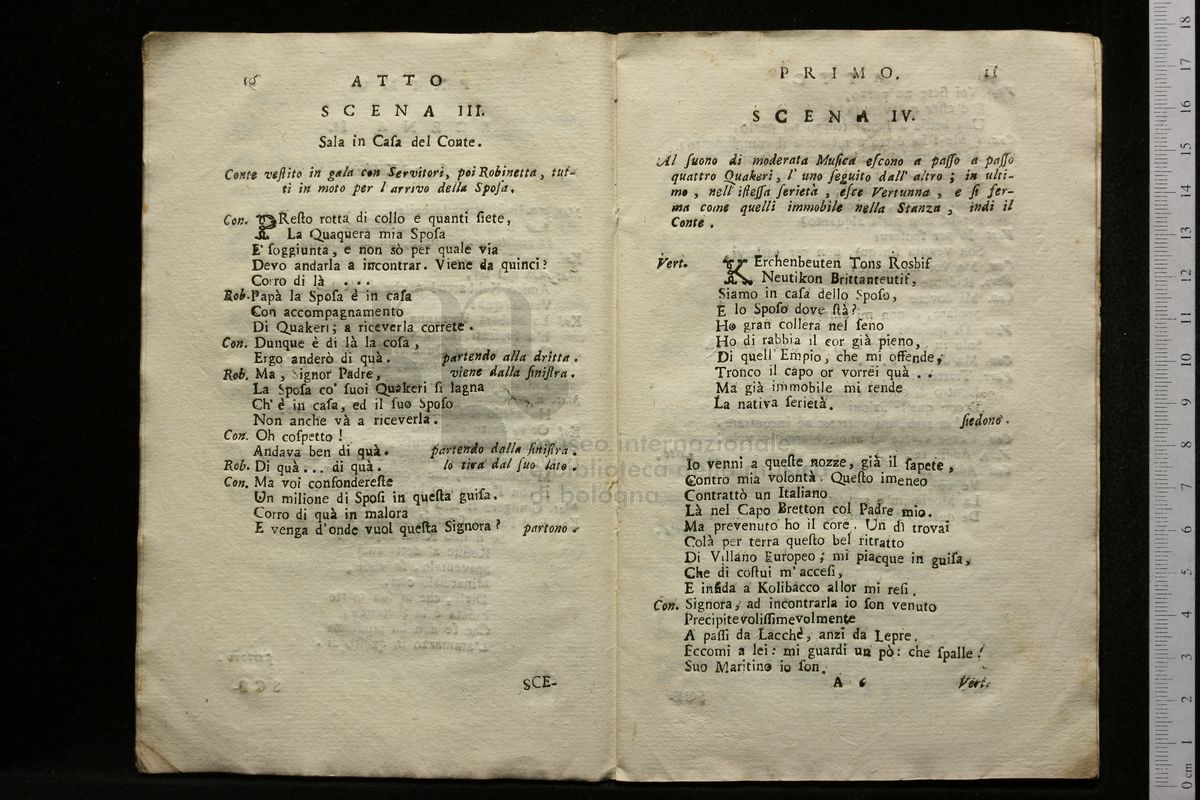 10 ATTO
SCENA III.
Sala in Caſa del Conte.
Conte veſtito in gala con Servitori, poi Robinetta, tut-
ti in moto per l'arrivo della Spoſa.
Con. PReſto rotta di collo e quanti ſiete,
La Quaquera mia Spoſa
E' ſoggiunta, e non sò per quale via
Devo andarla a incontrar. Viene da quinci?
Corro di là ...
Rob. Papà la Spoſa è in caſa
Con accompagnamento
Di Quakeri; a riceverla correte.
Con. Dunque è di là la coſa,
Ergo anderò di quà. partendo alla dritta.
Rob. Ma, Signor Padre, viene dalla ſiniſtra.
La Spoſa co' ſuoi Quakeri ſi lagna
Ch'è in caſa, ed il ſuo Spoſo
Non anche và a riceverla.
Con. Oh coſpetto!
Andava ben di quà. partendo dalla ſiniſtra.
Rob. Di quà... di quà. lo tira dal ſuo lato.
Con. Ma voi confondereſte
Un milione di Spoſi in queſta guiſa.
Corro di quà in malora
E venga d'onde vuol queſta Signora? partono.
SCE-
PRIMO. 11
SCENA IV.
Al ſuono di moderata Muſica eſcono a paſſo a paſſo
quattro Quakeri, l'uno ſeguito dall'altro; in ulti-
mo, nell'iſteſſa ſerietà, eſce Vertunna, e ſi fer-
ma come quelli immobile nella Stanza, indi il
Conte.
Vert. KErchenbeuten Tons Rosbif
Neutikon Brittanteutif,
Siamo in caſa dello Spoſo,
E lo Spoſo dove ſtà?
Ho gran collera nel ſeno
Ho di rabbia il cor già pieno,
Di quell'Empio, che mi offende,
Tronco il capo or vorrei quà ..
Ma già immobile mi rende
La nativa ſerietà.
ſiedono.
Io venni a queſte nozze, già il ſapete,
Contro mia volontà. Queſto imeneo
Contrattò un Italiano
Là nel Capo Bretton col Padre mio.
Ma prevenuto ho il core. Un dì trovai
Colà per terra queſto bel ritratto
Di Villano Europeo; mi piacque in guiſa,
Che di coſtui m'acceſi,
E infida a Kolibacco allor mi reſi.
Con. Signora, ad incontrarla io ſon venuto
Precipitevoliſſimevolmente
A paſſi da Lacchè, anzi da Lepre.
Eccomi a lei: mi guardi un pò: che ſpalle!
Suo Maritino io ſon.
A 6 Vert.
museo internazionale
e biblioteca della musica
di bologna
18
17
16
15
14
13
12
11
10
9
8
7
6
5
4
3
2
1
0 cm